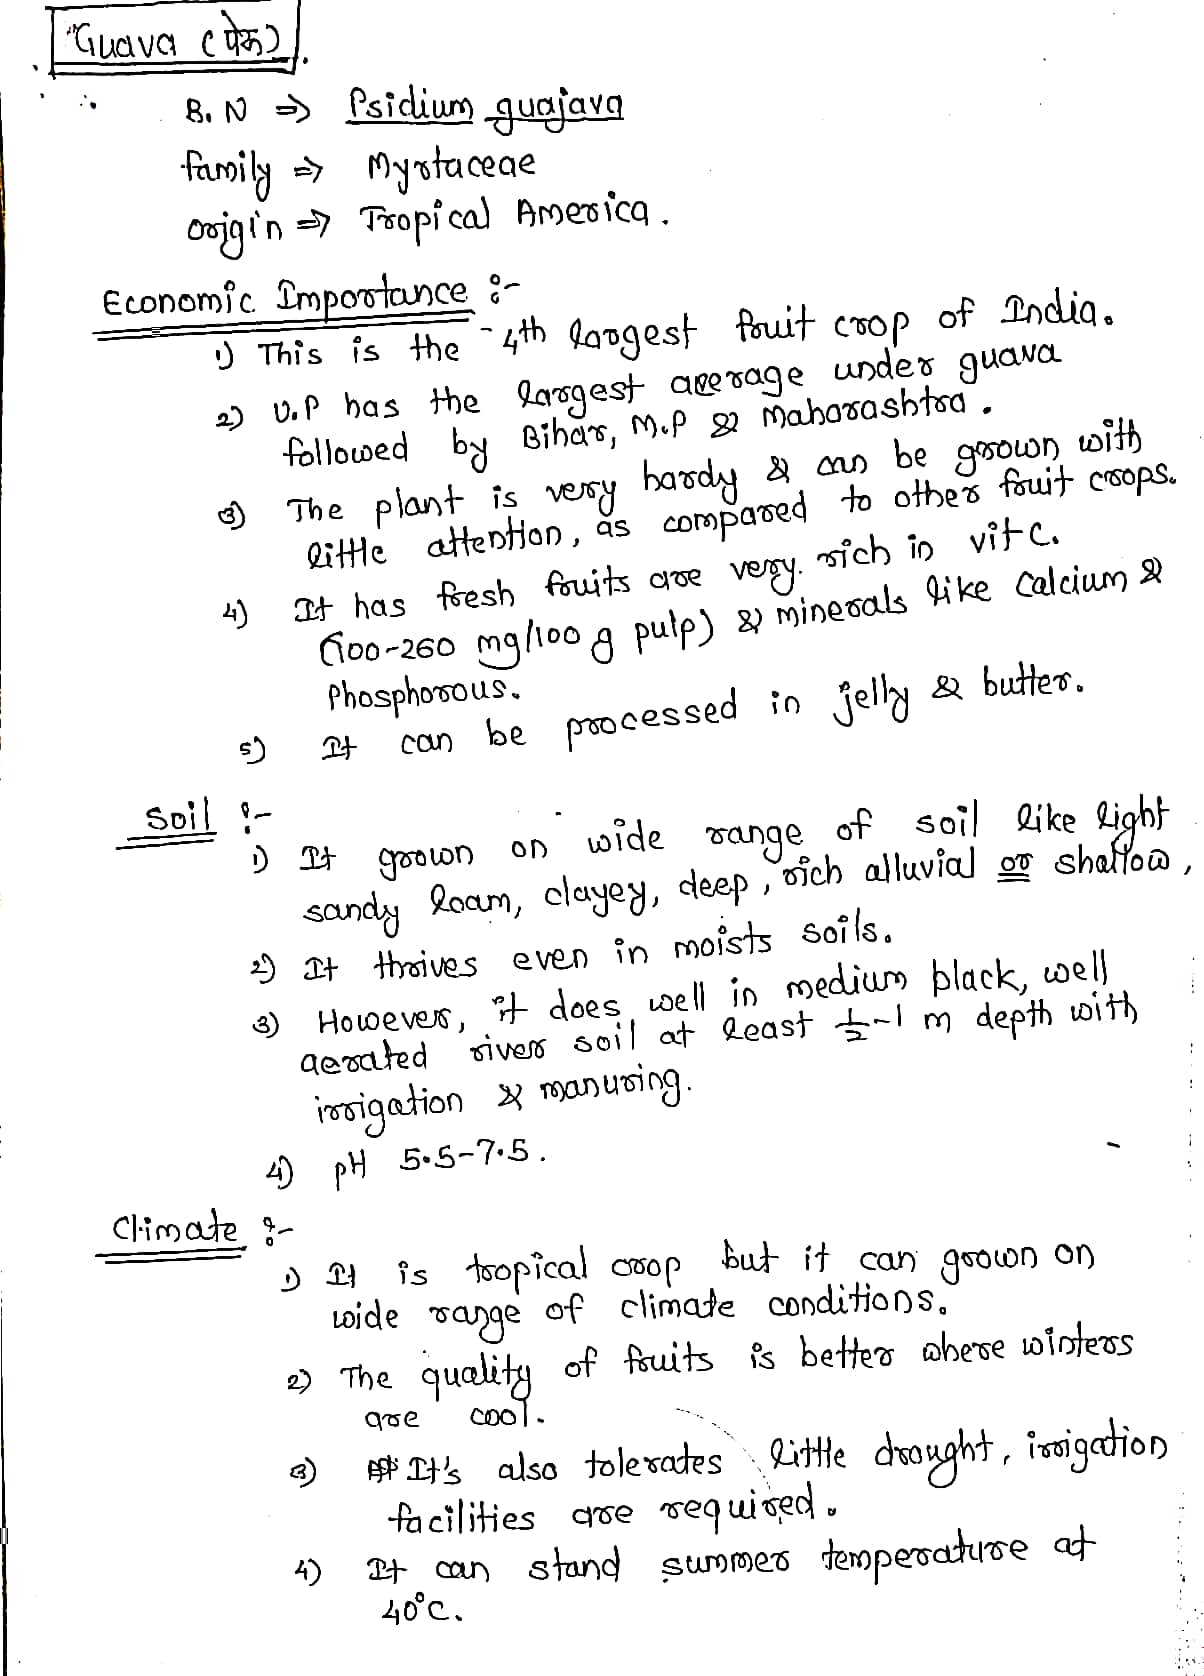 "Guava (पेरू)
B.N ⇒ Psidium guajava
family ⇒ Myrtaceae
origin ⇒ Tropical America.
Economic Importance :-
1) This is the 4th largest fruit crop of India.
2) U.P has the largest acerage under guava
followed by Bihar, M.P & Maharashtra.
3) The plant is very hardy & can be grown with
little attention, as compared to other fruit crops.
4) It has fresh fruits are very. rich in vit C.
(100-260 mg/100 g pulp) & minerals like Calcium &
Phosphorous.
5) It can be processed in jelly & butter.
Soil :-
1) It grown on wide range of soil like light
sandy loam, clayey, deep, rich alluvial or shallow,
2) It thrives even in moists soils.
3) However, it does well in medium black, well
aerated river soil at least ½-1 m depth with
irrigation & manuring.
4) pH 5.5-7.5.
Climate :-
1) It is tropical crop but it can grown on
wide range of climate conditions.
2) The quality of fruits is better where winters
are cool.
3) It's also tolerates little drought, irrigation
facilities are required.
4) It can stand summer temperature at
40°C.